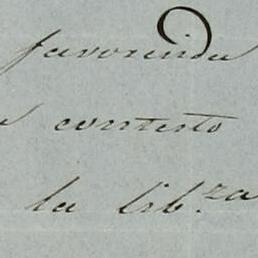 favorenda
contesto
la lib.za